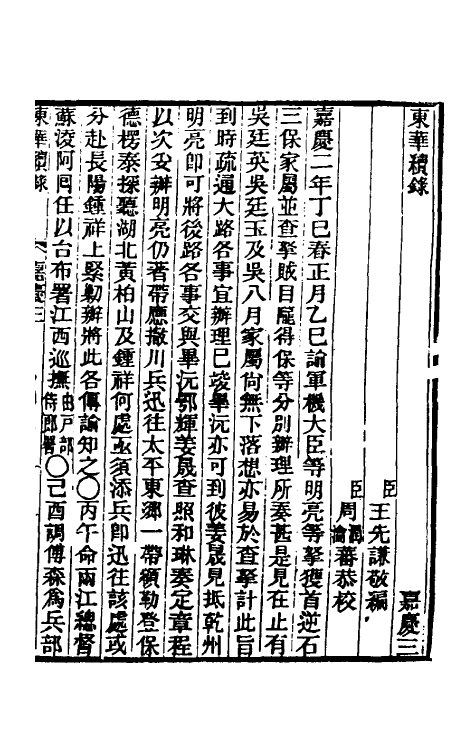 東華續錄 嘉慶三
臣王先謙敬編
臣周潤蕃瀹蕃恭校
嘉慶二年丁巳春正月乙巳諭軍機大臣等明亮等拏獲首逆石
三保家屬並查拏賊目龍得保等分別辦理所奏甚是見在止有
吳廷英吳廷玉及吳八月家屬尚無下落想亦易於查拏計此旨
到時疏通大路各事宜辦理已竣畢沅亦可到彼姜晟見抵乾州
明亮卽可將後路各事交與畢沅鄂輝姜晟查照和琳奏定章程
以次妥辦明亮仍著帶應撤川兵迅往太平東鄉一帶領勒登保
德楞泰探聽湖北黃柏山及鍾祥何處亟須添兵卽迅往該處或
分赴長陽鍾祥上緊勦辦將此各傳諭知之〇丙午命兩江總督
蘇淩阿囘任以台布署江西巡撫由戸部侍郎署〇己酉調傅森爲兵部
東華續錄 嘉慶三